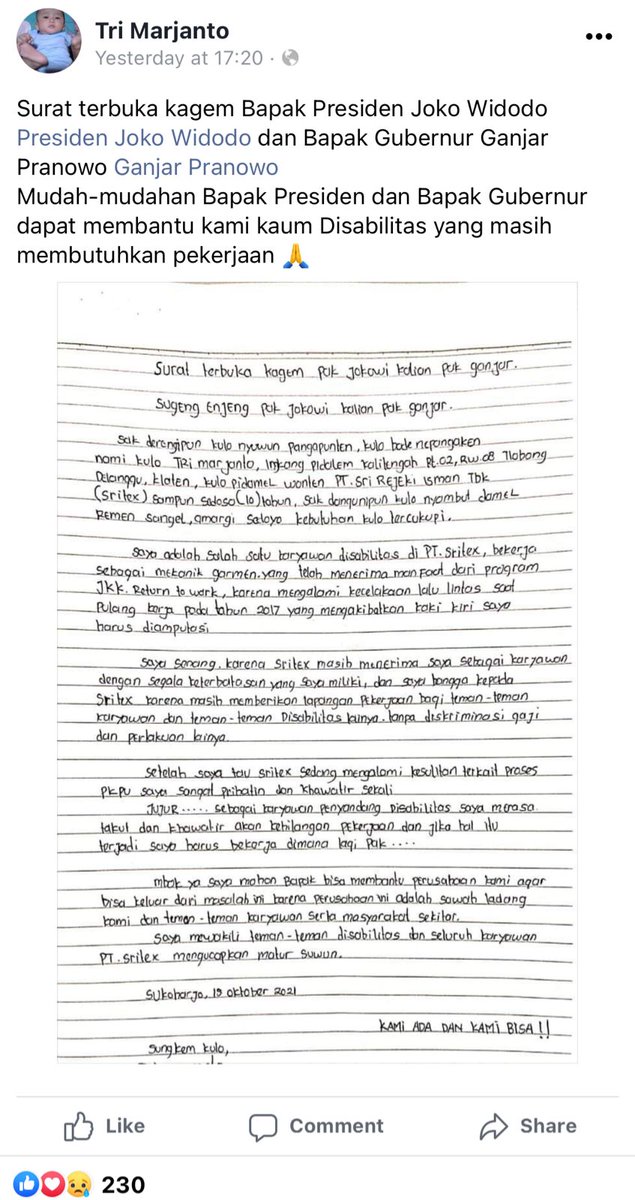 Tri Marjanto
Yesterday at 17:20
Surat terbuka kagem Bapak Presiden Joko Widodo
Presiden Joko Widodo dan Bapak Gubernur Ganjar
Pranowo Ganjar Pranowo
Mudah-mudahan Bapak Presiden dan Bapak Gubernur
dapat membantu kami kaum Disabilitas yang masih
membutuhkan pekerjaan 🙏
Surat terbuka kagem pak jokowi kalian pak ganjar.
Sugeng Enjeng pak jokowi kalian pak ganjar.
Sak derengipun kulo nyuwun pangapunten, kulo bade nepangaken
nami kulo TRi marjanto, ingkang pidalem kalitengah Rt.02, RW.08 Tlobong
Delanggu, klaten, kulo pidamel wonten PT. Sri REjEki isman Tbk
(Sritex) Sampun sadoso (10) tahun, sak dangunipun kulo nyambut damel
REmen sanget, amargi sataye kebutuhan kulo tercukupi.
saya adalah salah satu karyawan disabilitas di PT. Sritex, bekerja
sebagai mekanik garmen, yang telah menerima manfaat dari program
JKK. Return to work, karena mengalami kecelakaan lalu lintas saat
Pulang kerja pada tahun 2017 yang mengakibatkan kaki kiri saya
harus diamputasi
Saya Senang, karena Sritex masih menerima saya sebagai karyawan
dengan segala keterbatasan yang saya miliki, dan saya bangga kepada
Sritex karena masih memberikan lapangan Pekerjaan bagi teman-teman
karyawan dan teman-teman Disabilitas lainya. tanpa diskriminasi gaji
dan perlakuan lainya.
Setelah saya tau sritex sedang mengalami kesulitan terkait proses
PKPU saya sangat prihatin dan khawatir sekali
JUJUR ..... sebagai karyawan penyandang Disabilitas saya merasa
takut dan khawatir akan kehilangan pekerjaan dan jika hal itu
terjadi saya harus bekerja dimana lagi pak ....
mbok ya saya mohon Bapak bisa membantu perusahaan kami agar
bisa keluar dari masalah ini karena perusahaan ini adalah sawah ladang
kami dan teman-teman karyawan serta masyarakat sekitar.
Saya mewakili teman-teman disabilitas dan seluruh karyawan
PT. Sritex mengucapkan matur suwun.
Sukoharjo, 19 oktober 2021
KAMi ADA DAN KAMi BiSA !!
Sungkem kulo,
Like
Comment
Share
230